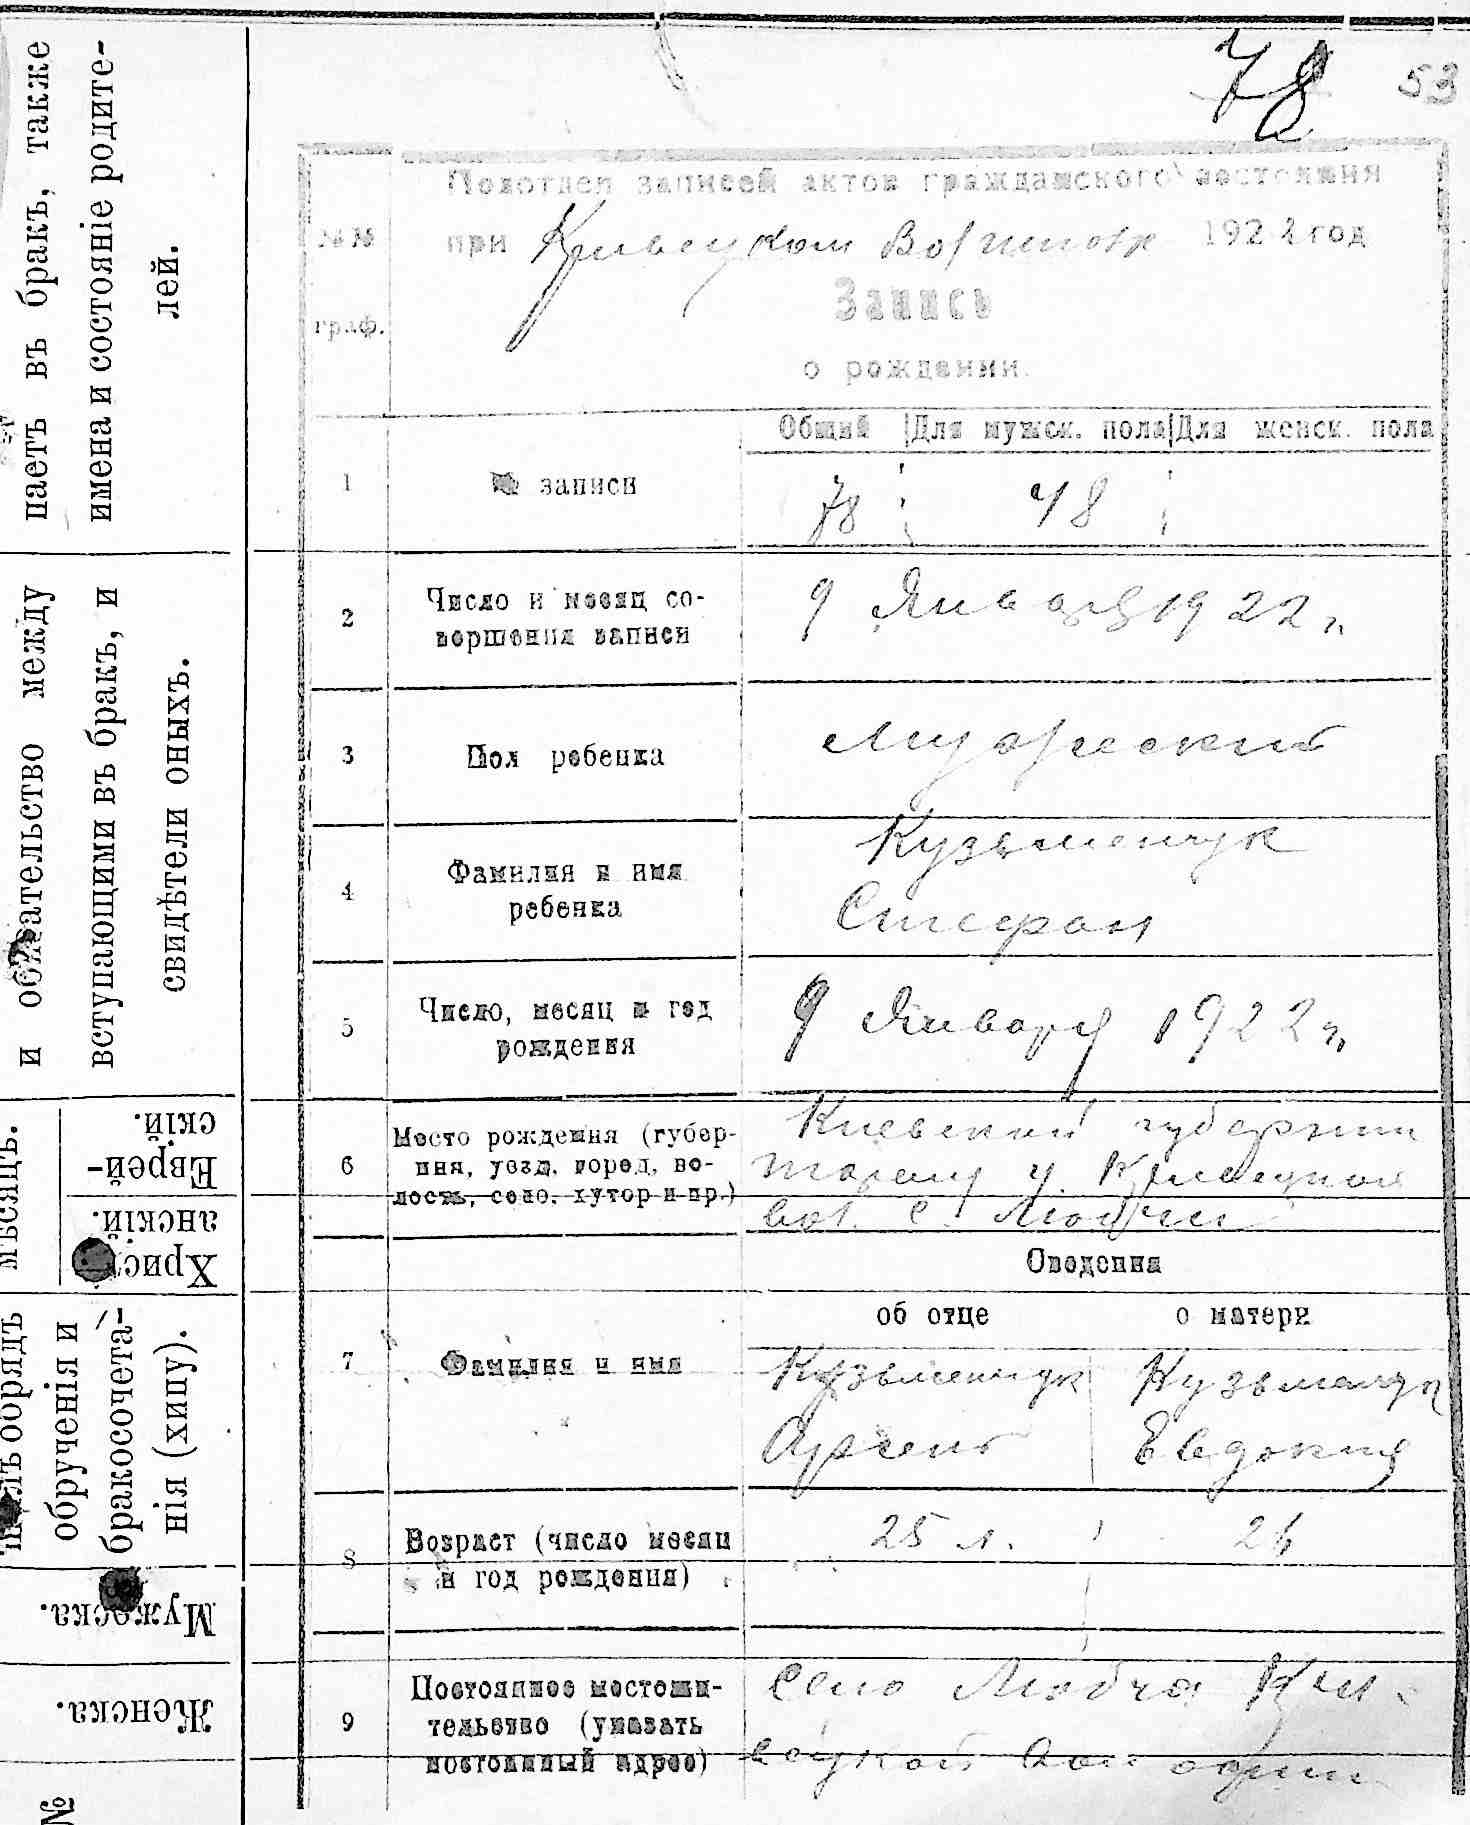 пает въ бракъ, также
имена и состояніе родите-
лей.
и обязательство между
вступающими въ бракъ, и
свидѣтели оныхъ.
мѣсяцъ.
Еврей-
скій.
Христі-
анскій.
обрядъ
обрученія и
бракосочета-
нія (хипу).
Мужеска.
Женска.
№
78
53
Подотдел записей актов гражданского состояния
при 1922 год
№№
граф.
Запись
о рождении.
Общий Для мужск. пола Для женск. пола
1 № записи 78 48
2 Число и месяц со-
вершения записи
9 Января 1922 г.
3 Пол ребенка Мужеский
4 Фамилия и имя
ребенка
Кузьменчук
Стефан
5 Число, месяц и год
рождения
9 Января 1922 г.
6 Место рождения (губер-
ния, уезд, город, во-
лость, село, хутор и пр.)
Киевской губернии
у.
вол. с.
Сведения
об отце о матери
7 Фамилия и имя
Кузьменчук Кузьменчук
Евдокия
8 Возраст (число месяц
и год рождения)
25 л. 26
9 Постоянное местожи-
тельство (указать
постоянный адрес)
Село Любча
волости